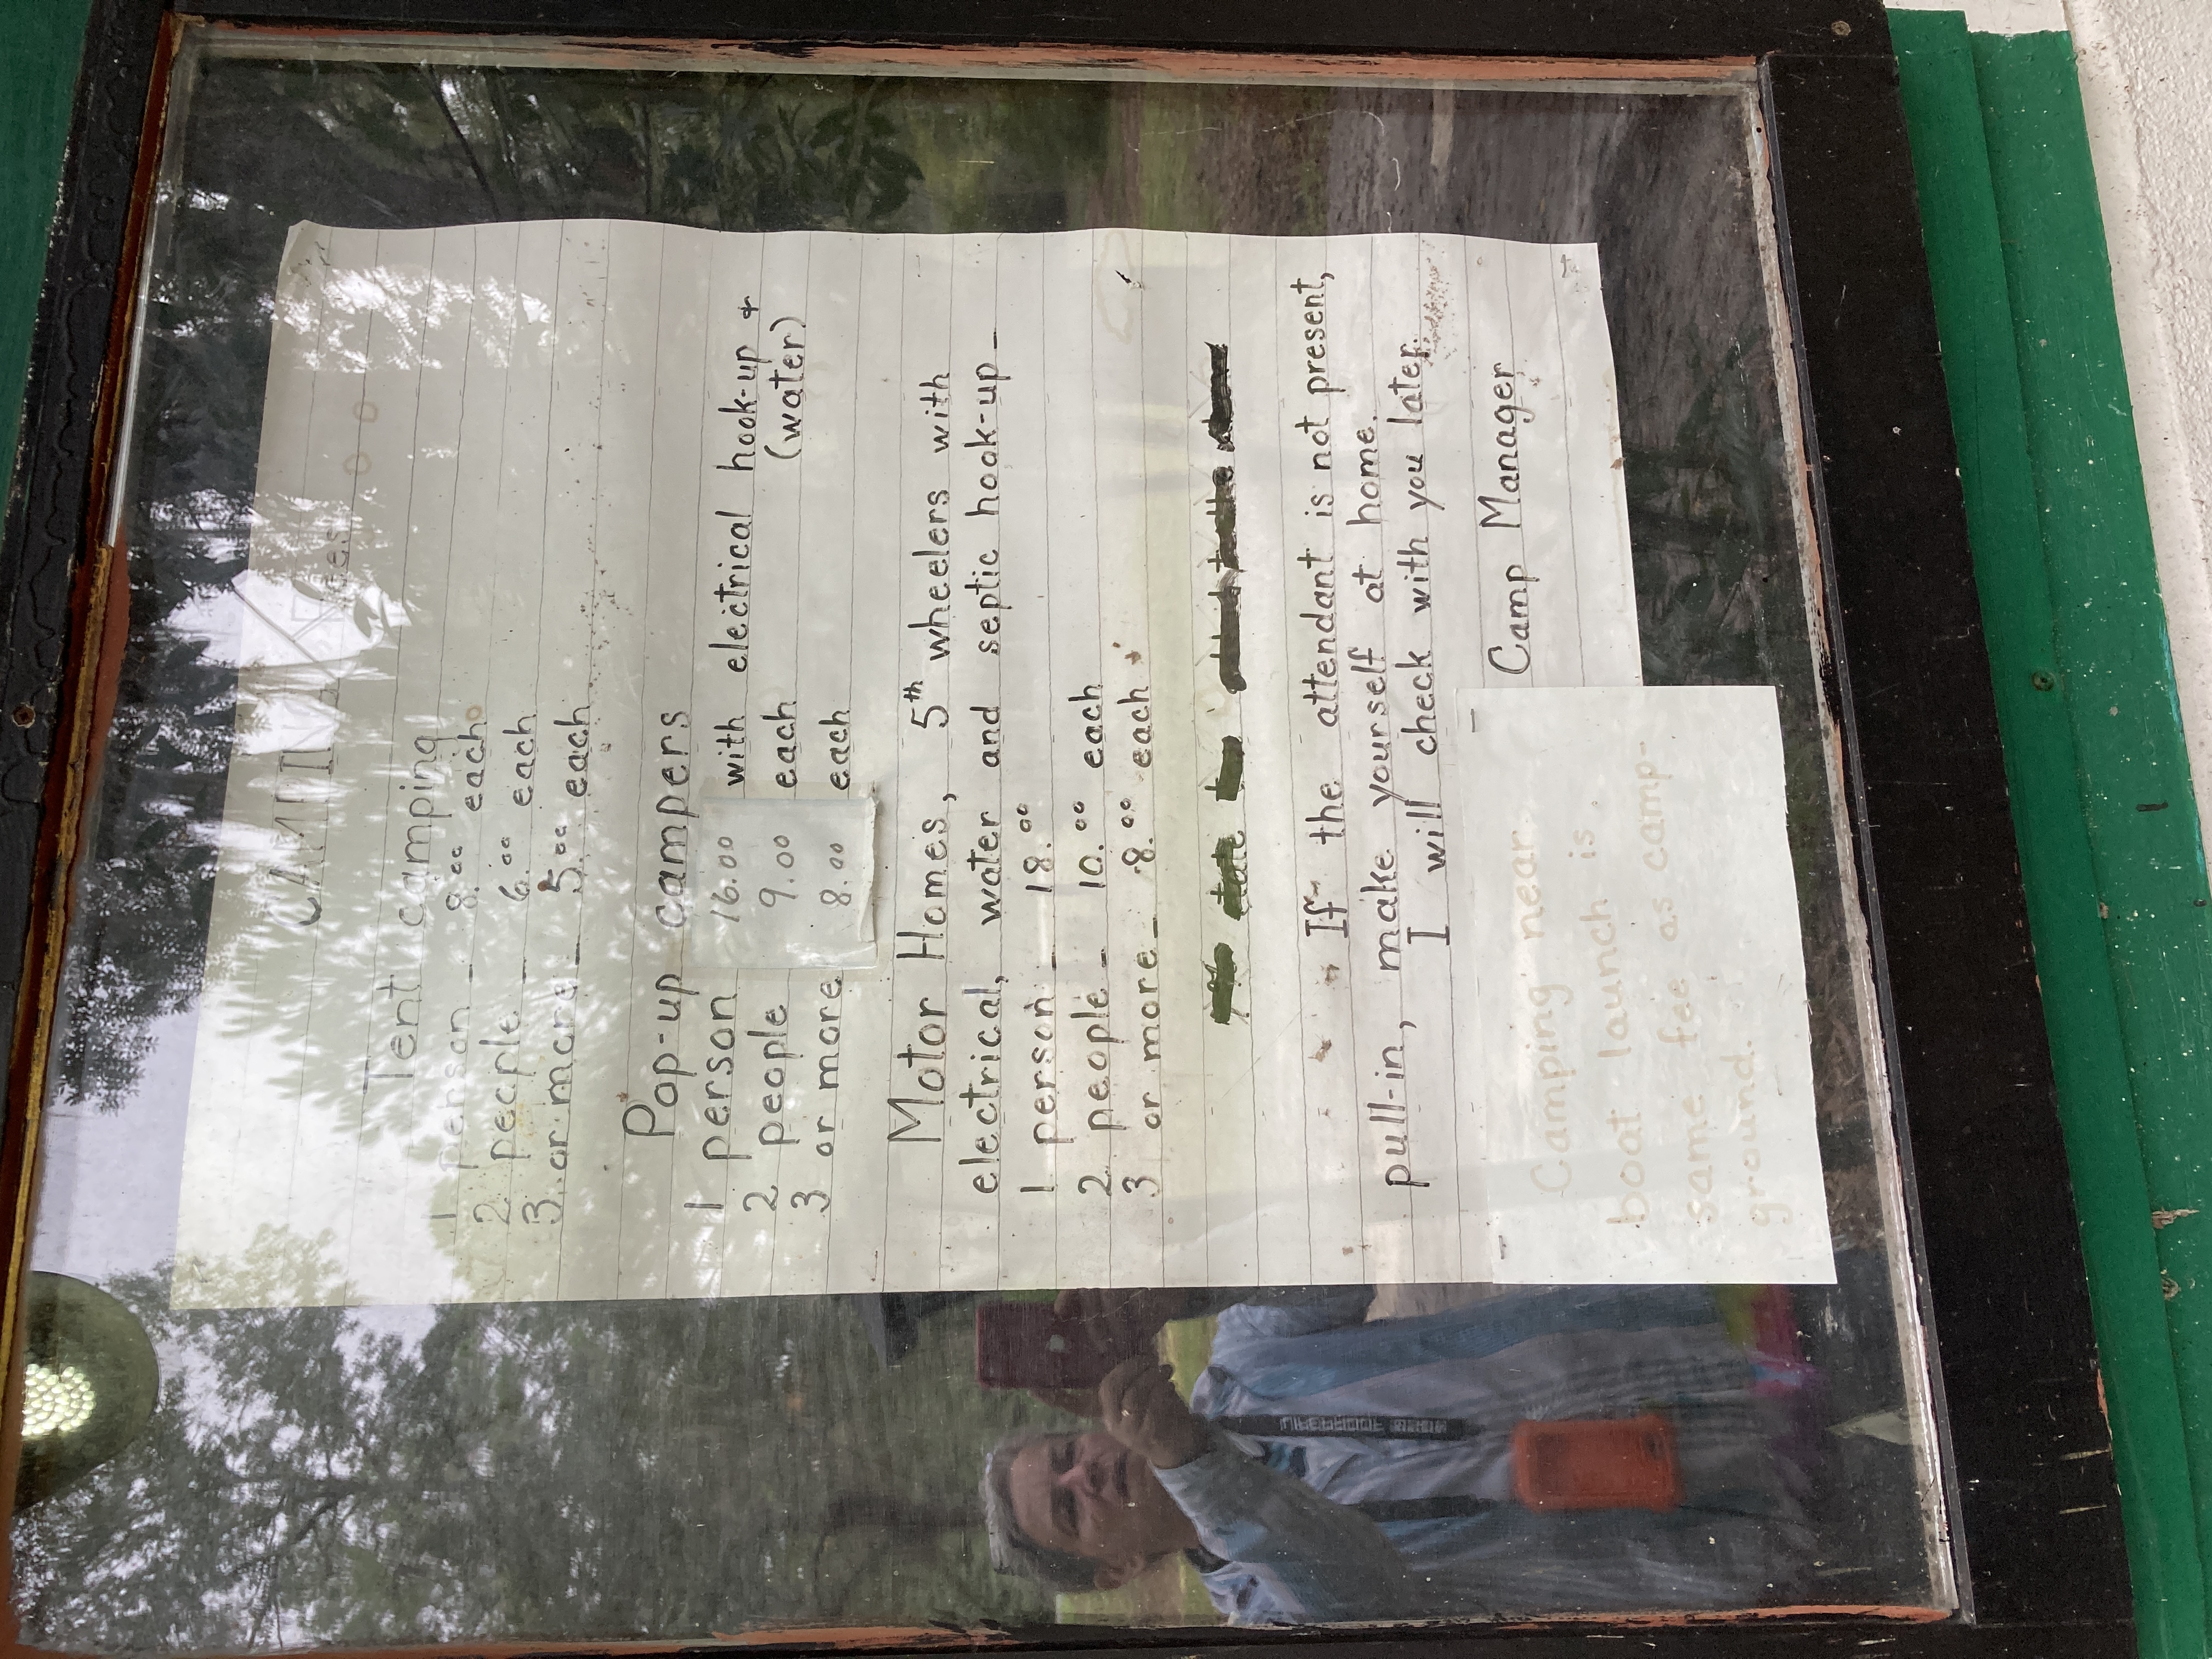 CAMPING Fees
Tent camping
1 person - 8.00 each
2 people - 6.00 each
3 or more - 5.00 each
Pop-up campers
1 person 16.00 with electrical hook-up &
2 people 9.00 each (water)
3 or more 8.00 each
Motor Homes, 5th wheelers with
electrical, water and septic hook-up -
1 person - 18.00
2 people - 10.00 each
3 or more - 8.00 each
If the attendant is not present,
pull-in, make yourself at home.
I will check with you later.
Camp Manager
Camping near
boat launch is
same fee as camp-
ground.